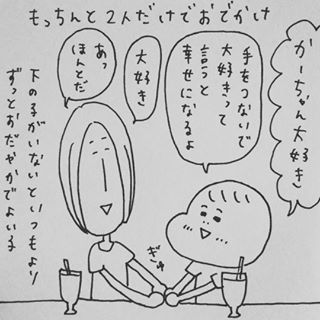 もっちんと2人だけでおでかけ
かーちゃん大好き
手をつないで
大好きって
言うと
幸せになるよ
大好き
あっ
ほんとだ
ぎゅ
下の子がいないといつもより
ずっとおだやかでよいる